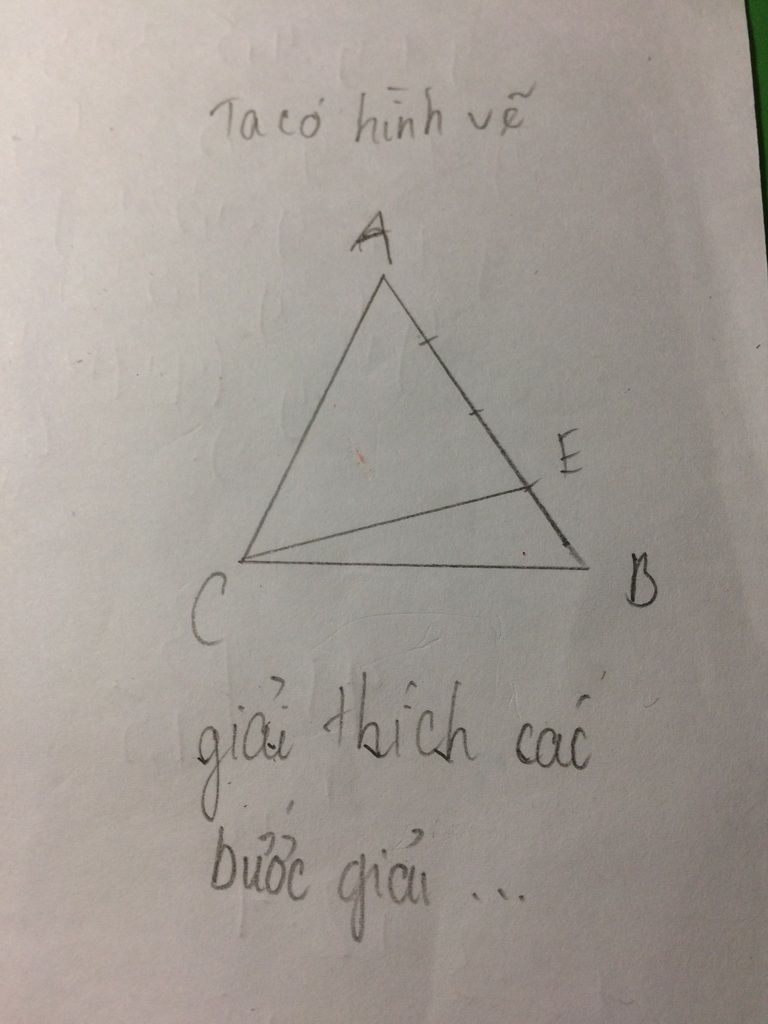 Ta có hình vẽ
A
E
B
C
giải thích các
bước giải ...